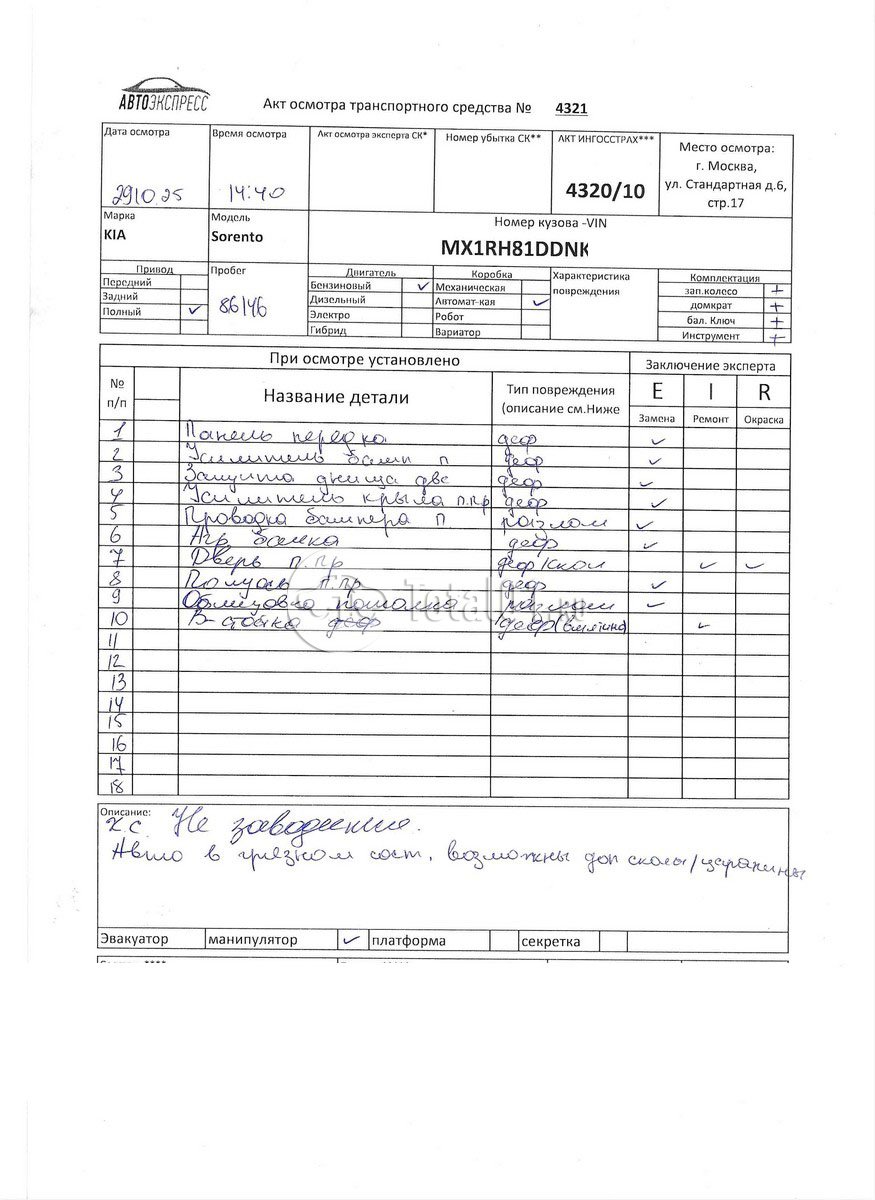 АВТОЭКСПРЕСС
Акт осмотра транспортного средства № 4321
Дата осмотра Время осмотра Акт осмотра эксперта СК* Номер убытка СК** АКТ ИНГОССТРАХ*** Место осмотра:
г. Москва,
ул. Стандартная д.6,
стр.17
29.10.25 14:40 4320/10
Марка Модель Номер кузова -VIN
KIA Sorento MX1RH81DDNK
Привод Пробег Двигатель Коробка Характеристика повреждения Комплектация
Передний Бензиновый ✓ Механическая зап.колесо +
Задний Дизельный Автомат-кая ✓ домкрат +
Полный ✓ 86146 Электро Робот бал. Ключ +
Гибрид Вариатор Инструмент +
При осмотре установлено Заключение эксперта
№ п/п Название детали Тип повреждения (описание см.Ниже E I R
Замена Ремонт Окраска
1 Панель передка деф ✓
2 Усилитель бамп п деф ✓
3 Защита днища двс деф ✓
4 Усилитель крыла п.пр деф ✓
5 Проводка бампера п. разлом ✓
6 Агр балка деф ✓
7 Дверь п.пр деф/скол ✓ ✓
8 Полуось п.пр деф ✓
9 Облицовка потолка разлом ✓
10 В-стойка деф деф(вмятина) ✓
11
12
13
14
15
16
17
18
Total
Описание:
х.с. Не заводится.
Авто в грязном сост. возможны доп сколы/царапины
Эвакуатор манипулятор ✓ платформа секретка